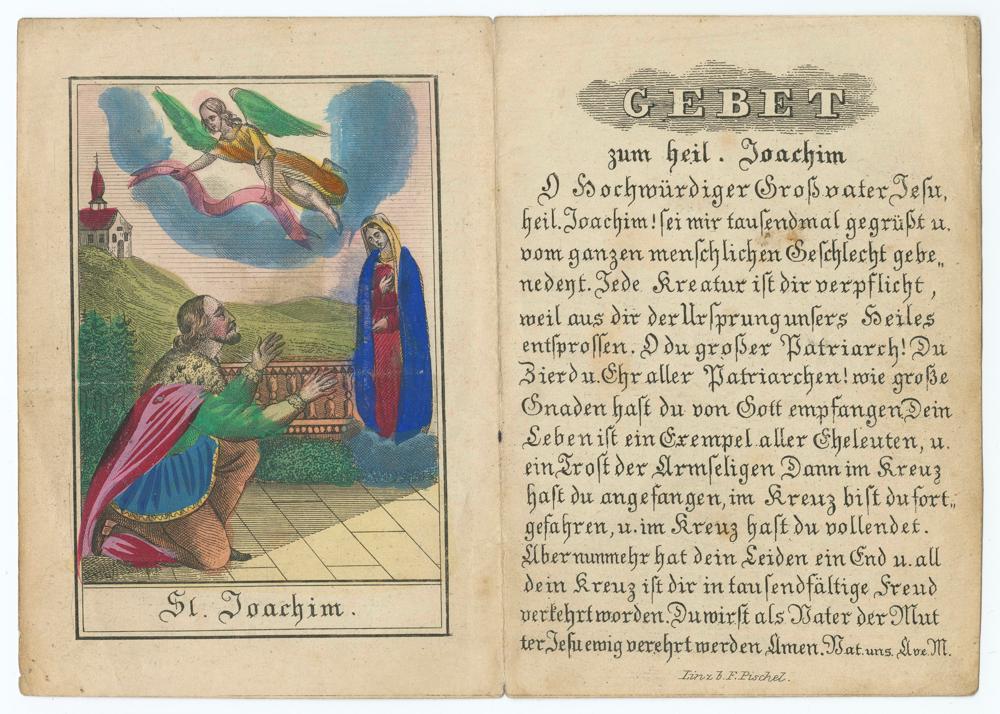 St. Joachim.
GEBET
zum heil. Joachim
O Hochwürdiger Großvater Jesu,
heil. Joachim! sei mir tausendmal gegrüßt u.
vom ganzen menschlichen Geschlecht gebe„
nedeyt. Jede Kreatur ist dir verpflicht,
weil aus dir der Ursprung unsers Heiles
entsprossen. O du großer Patriarch! Du
Zierd u. Ehr aller Patriarchen! wie große
Gnaden hast du von Gott empfangen. Dein
Leben ist ein Exempel aller Eheleuten, u.
ein Trost der Armseligen Dann im Kreuz
hast du angefangen, im Kreuz bist du fort„
gefahren, u. im Kreuz hast du vollendet.
Aber nunmehr hat dein Leiden ein End u. all
dein Kreuz ist dir in tausendfältige Freud
verkehrt worden. Du wirst als Vater der Mut
ter Jesu ewig verehrt werden Amen. Vat. uns. Ave. M.
Linz b. F. Pischel.